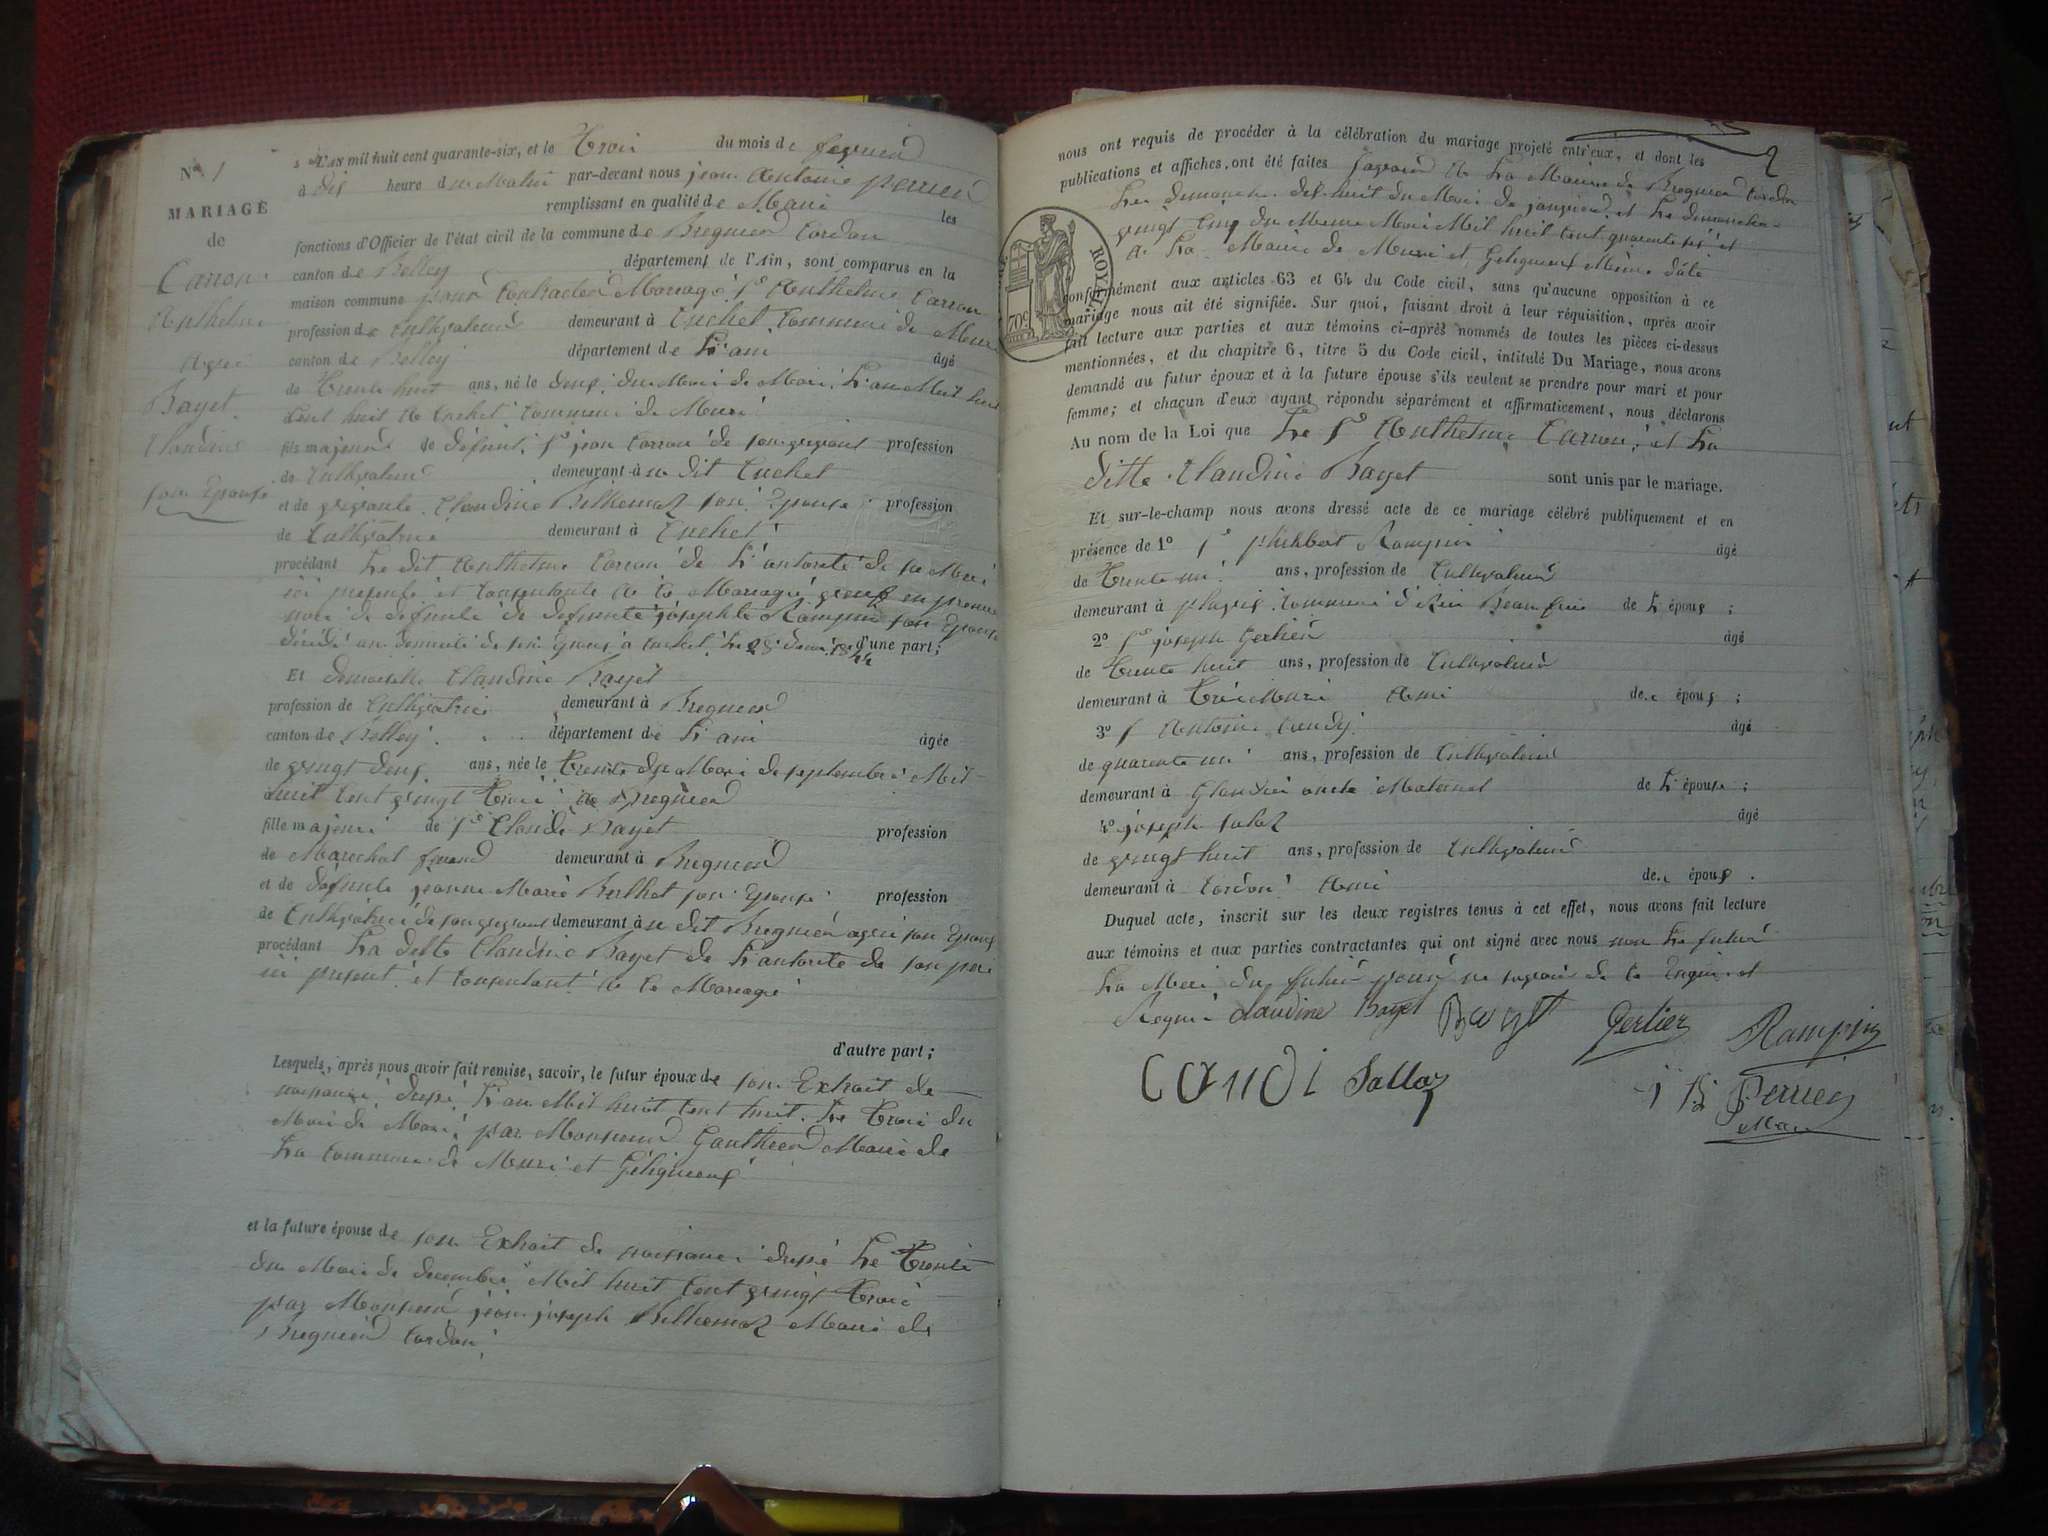 No 1
MARIAGE
de
Carron
Anthelme
Avec
Bayet
Claudine
son Epouse
L'an mil huit cent quarante-six, et le Troi du mois de fevrier
à dix heure du Matin par-devant nous jean Antoine perrier
remplissant en qualité de Maire les
fonctions d'Officier de l'état civil de la commune de Bregnier Cordon
canton de Belley département de l'Ain, sont comparus en la
maison commune pour Contracter Mariage Sr Anthelme Carron
profession de Cultivateur demeurant à Cuchet Commune de Muri
canton de Belley département de L'ain âgé
de Trente huit ans, né le deux du Moi de Mari L'an Mil huit
Cent huit a Cuchet Commune de Muri
fils majeur de défunt Sr jean Carron de son vivant profession
de Cultivateur demeurant à u dit Cuchet
et de vivante Claudine Billiemaz son Epouse profession
de Cultivatrice demeurant à Cuchet
procédant Le dit Anthelme Carron de L'autorité de sa Meri
ici presente et Consentante a Ce Mariage veuf en premiere
noce de defunte josephte Rampin son Epouse
d'une part;
Et demoiselle Claudine Bayet
profession de Cultivatrice demeurant à Bregnier
canton de Belley département de L'ain âgée
de vingt deux ans, née le Trente du Moi de septembre Mil
huit Cent vingt Troi a Bregnier
fille majeure de Sr Claude Bayet profession
de Marechal ferrand demeurant à Bregnier
et de défunte jeanne Marie Berthet son Epouse profession
de Cultivatrice de son vivant demeurant à u dit Bregnier avec son Epoux
procédant La ditte Claudine Bayet de L'autorité de son peri
ici present et Consentant a Ce Mariage
d'autre part;
Lesquels, après nous avoir fait remise, savoir, le futur époux de son Extrait de
naissance dressé L'an Mil huit Cent huit Le Troi du
Moi de Mari par Monsieur Gauthier Maire de
La Commune de Muri et Gélignieux
et la future épouse de son Extrait de naissance dressé Le Trente
du Moi de decembre Mil huit Cent vingt Troi
par Monsieur jean joseph Billiemaz Maire de
Bregnier Cordon
2
nous ont requis de procéder à la célébration du mariage projeté entr'eux, et dont les
publications et affiches ont été faites savoir a La Mairie de Bregnier Cordon
Le dimanche dix huit du Moi de janvier et Le dimanche
vingt Cinq du Meme Moi Mil huit Cent quarante six et
a La Mairie de Muri et Gelignieux Meme date
ROYAL
70c
conformément aux articles 63 et 64 du Code civil, sans qu'aucune opposition à ce
mariage nous ait été signifiée. Sur quoi, faisant droit à leur réquisition, après avoir
fait lecture aux parties et aux témoins ci-après nommés de toutes les pièces ci-dessus
mentionnées, et du chapitre 6, titre 5 du Code civil, intitulé Du Mariage, nous avons
demandé au futur époux et à la future épouse s'ils veulent se prendre pour mari et pour
femme; et chacun d'eux ayant répondu séparément et affirmativement, nous déclarons
Au nom de la Loi que Le Sr Anthelme Carron et La
ditte Claudine Bayet sont unis par le mariage.
Et sur-le-champ nous avons dressé acte de ce mariage célébré publiquement et en
présence de 1o Sr philibert Rampin âgé
de Trente un ans, profession de Cultivateur
demeurant à Commune de L'époux ;
2o Sr joseph Gerlier âgé
de Trente huit ans, profession de Cultivateur
demeurant à Ami de L époux ;
3o S Antoine Candy âgé
de quarente un ans, profession de Cultivateur
demeurant à Glandieu oncle Maternel de L'épouse ;
4o joseph Salaz âgé
de vingt huit ans, profession de Cultivateur
demeurant à Cordon Ami de L époux .
Duquel acte, inscrit sur les deux registres tenus à cet effet, nous avons fait lecture
aux témoins et aux parties contractantes qui ont signé avec nous non Le futur
La Meri du futur pour ne savoir de Ce Enqui et
Requi Claudine Bayet Bayet Gerlier Rampin
Candi Sallaz j A Perrier
Maire